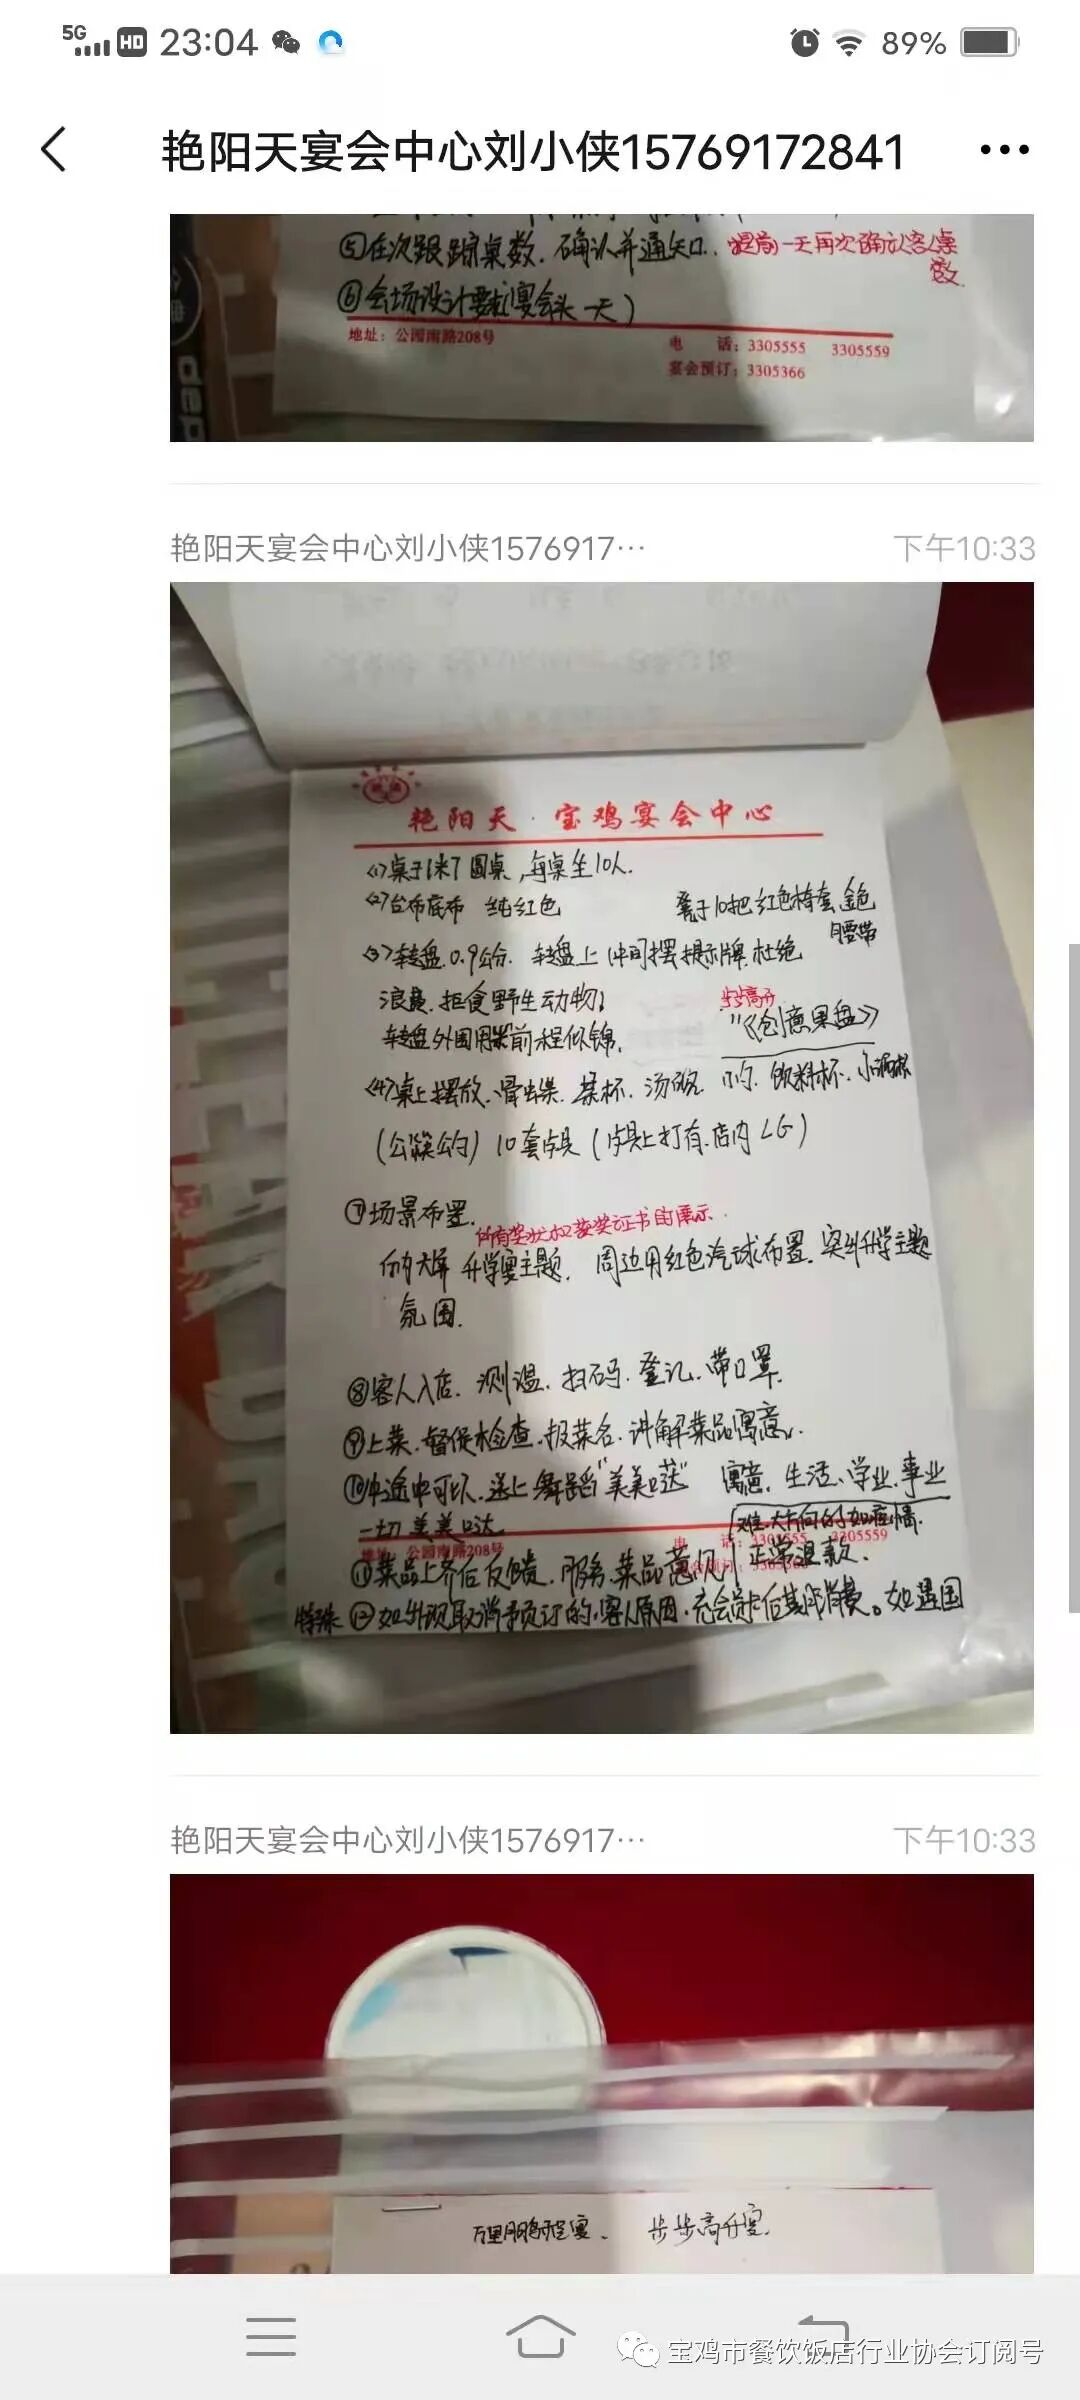 5G HD 23:04 89%
艳阳天宴会中心刘小侠15769172841
⑤在次跟踪桌数.确认并通知.提前一天再次确认客人桌
数.
⑥会场设计要求(宴会头一天)
地址：公园南路208号
电 话：3305555 3305559
宴会预订：3305366
艳阳天宴会中心刘小侠1576917…
下午10:33
艳阳天·宝鸡宴会中心
<1>桌子1米7圆桌,每桌坐10人.
<2>台布底布 纯红色
凳子10把红色椅套金色
腰带
<3>转盘0.9公分.转盘上中间摆提示牌.杜绝
浪费.拒食野生动物;
步步高升
转盘外围用菜前程似锦.
"《创意果盘》
<4>桌上摆放.骨碟.茶杯.汤碗.勺.饮料杯.小酒杯
(公筷公勺)10套餐具(餐具上打有.店内LG)
⑦场景布置.
所有奖状和获奖证书的展示.
升学宴主题.周边用红色汽球布置.突出升学主题
氛围.
⑧客人入店.测温.扫码.登记.带口罩.
⑨上菜.督促检查.报菜名.讲解菜品寓意.
⑩中途中可以.送上舞蹈"美美哒" 寓意.生活.学业.事业
一切美美哒.
难.大方向的如疫情.
地址：公园南路208号
电 话：3305555 3305559
⑪菜品上齐后反馈.服务.菜品意见
正常退款.
特殊⑫如出现取消预订的.客人原因.充会员卡后期消费。如遇国
艳阳天宴会中心刘小侠1576917…
下午10:33
万里鹏程宴、 步步高升宴.
宝鸡市餐饮饭店行业协会订阅号